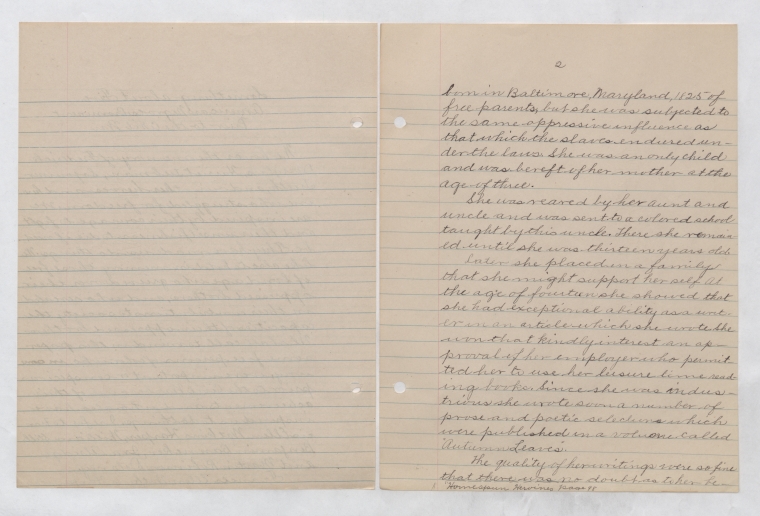 2
born in Baltimore, Maryland, 1825 of
free parents, but she was subjected to
the same oppressive influence as
that which the slaves endured un-
der the laws. She was an only child
and was bereft of her mother at the
age of three.
She was reared by her aunt and
uncle and was sent to a colored school
taught by this uncle. There she remain
ed until she was thirteen years old.
Later she placed in a family
that she might support her self. At
the age of fourteen she showed that
she had exceptional ability as a writ-
er in an article which she wrote. She
won that kindly interest an ap-
proval of her employer who permit
ted her to use her leisure time read
ing books. Since she was indus-
trious she wrote soon a number of
prose and poetic selections which
were published in a volume called
"Autumn Leaves".
The quality of her writings were so fine
that there was no doubt as to her be-
1 Homespun Heroines